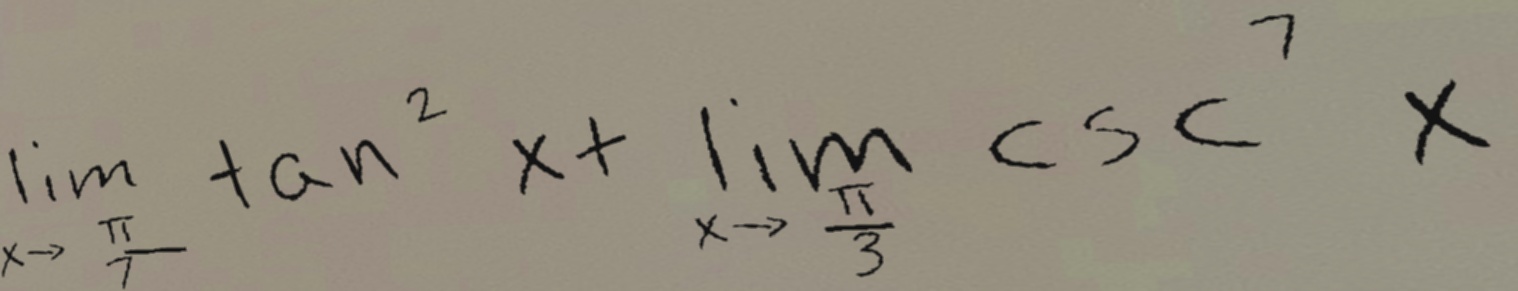 lim_{x→π/7} tan² x + lim_{x→π/3} csc⁷ x